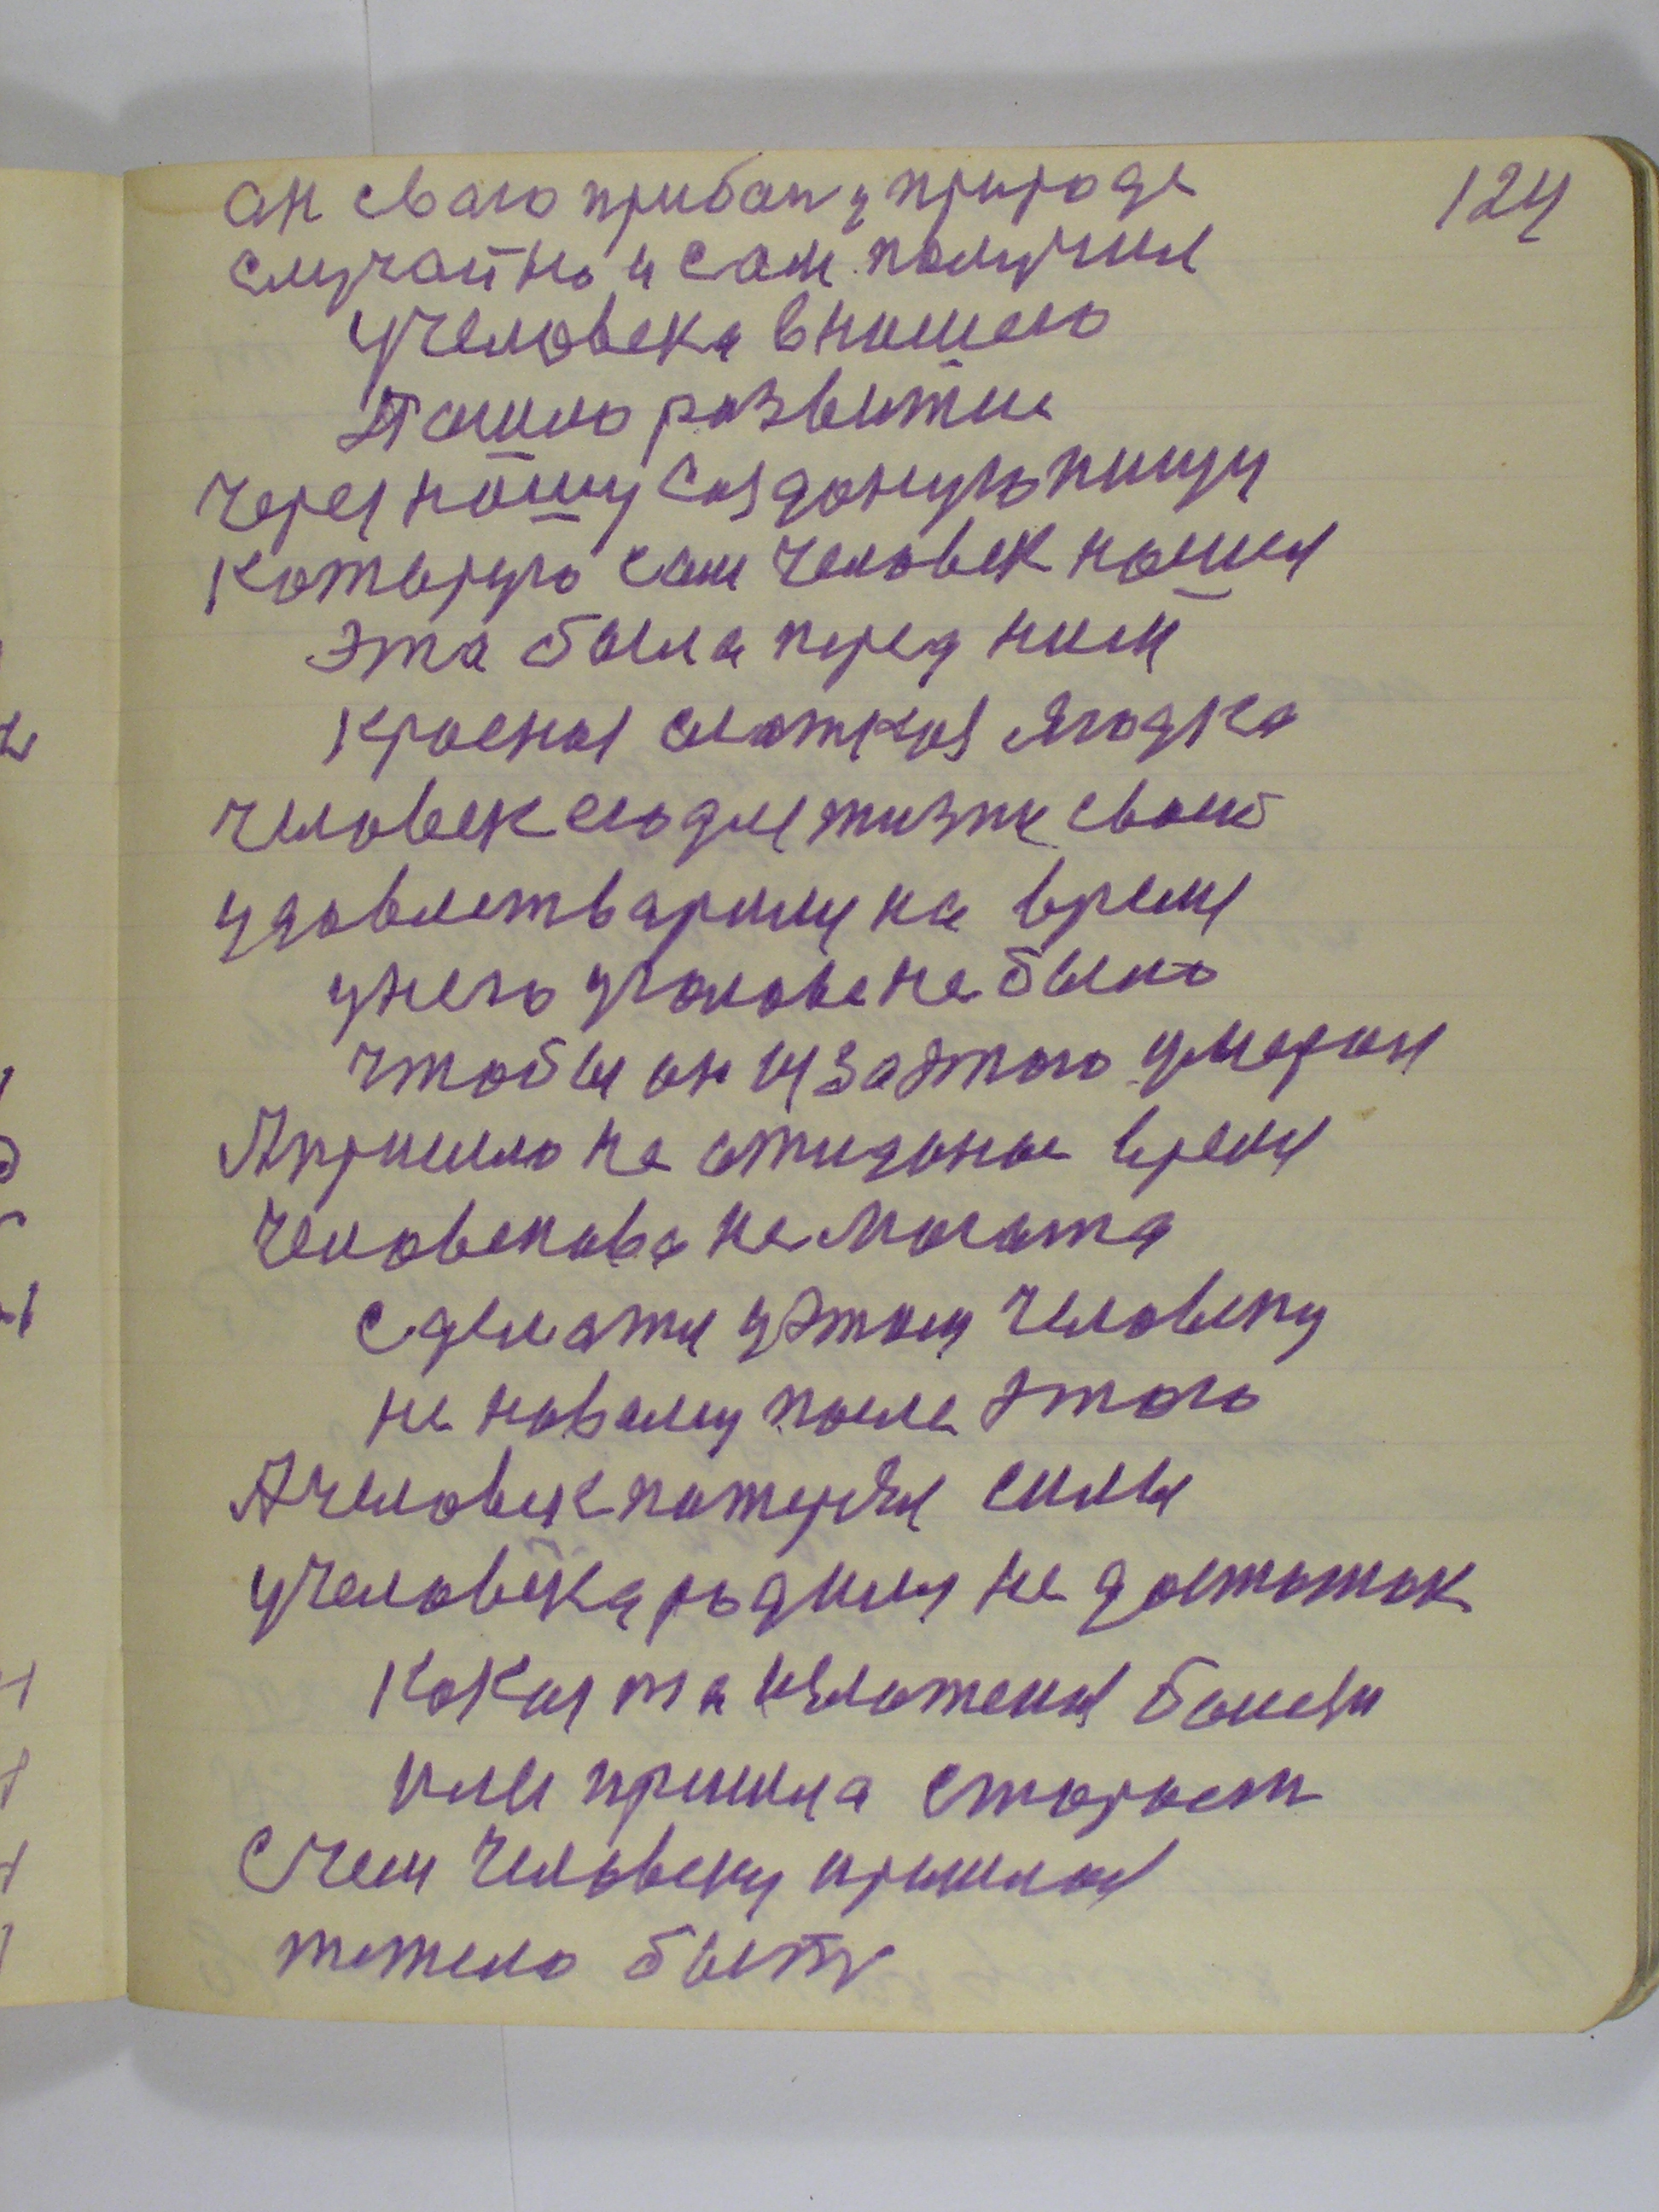 124
он сваго прибал у природе
случайно и сам получил
учеловека внашего
Пашло развитие
через нашу созданую пищу
которую сам человек нашел
Эта была перед ним
красная слаткая ягодка
человек ею для жизни своей
удовлетварили на время
унего уголове не было
чтобы он из за этого умерал
А пришло не ажиданое время
человекова не магота
сделати уэтому человеку
не новаму после этого
А человек потерял силы
учеловека родился не достоток
Какая та изложения болезн
или пришла старост
С чем человеку пришлося
тежело быть